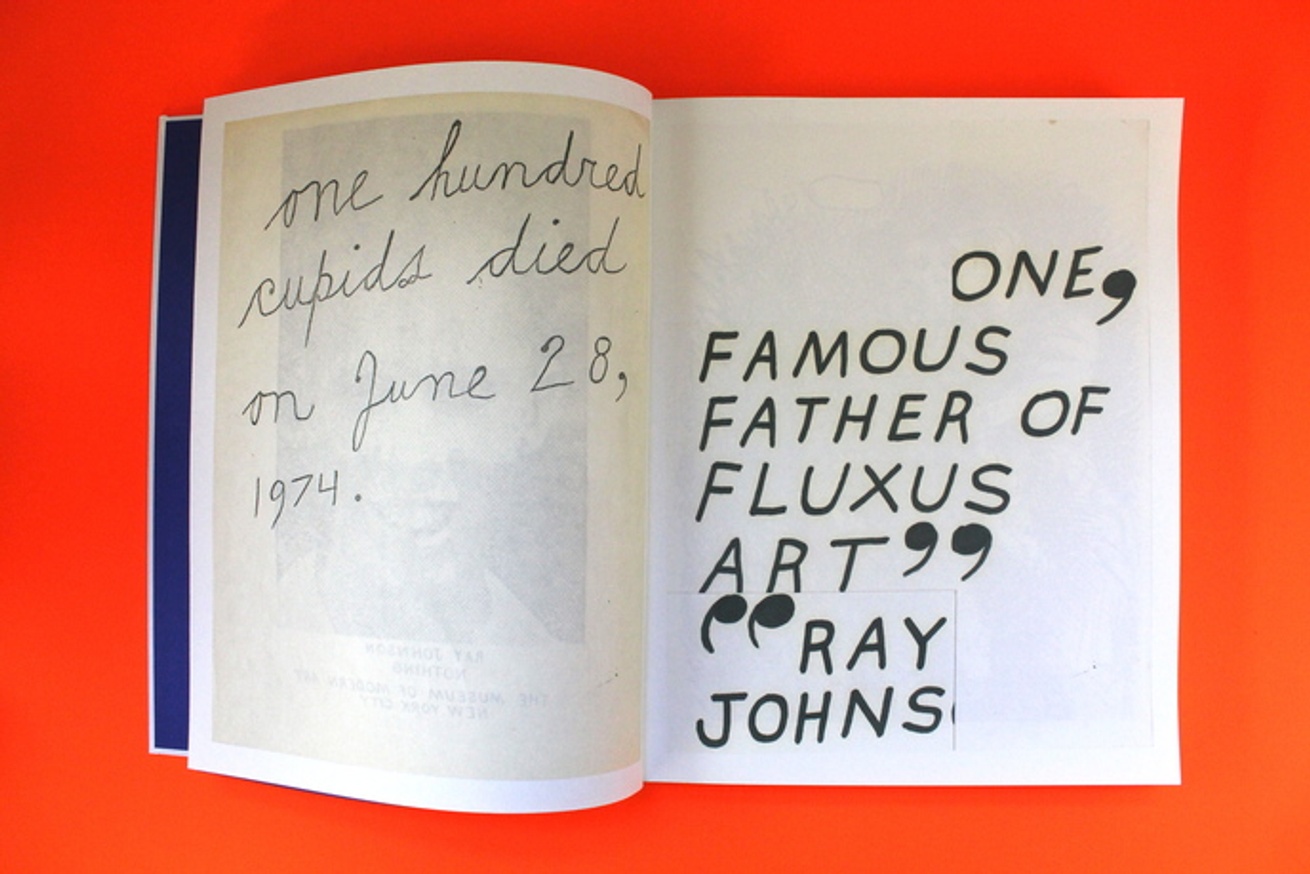 one hundred
cupids died
on June 28,
1974.
RAY JOHNSON
NOTHING
THE MUSEUM OF MODERN ART
NEW YORK CITY
ONE,
FAMOUS
FATHER OF
FLUXUS
ART”
“RAY
JOHNS